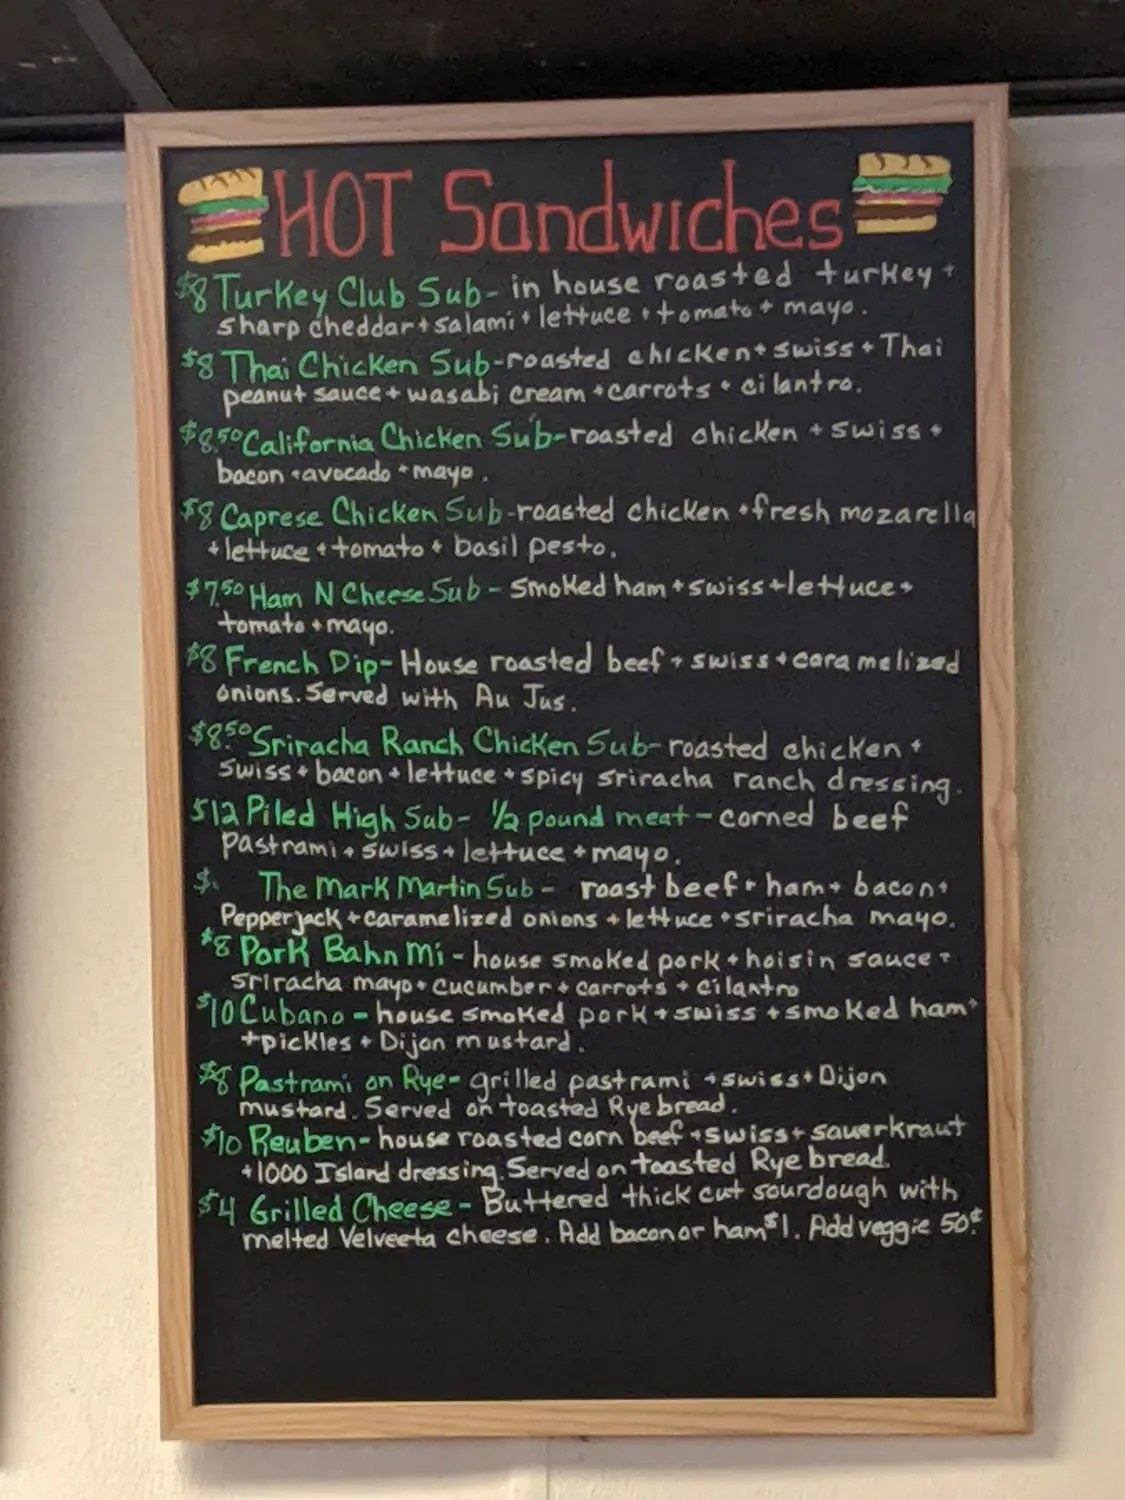 HOT Sandwiches
$8 Turkey Club Sub- in house roasted turkey +
sharp cheddar + salami + lettuce + tomato + mayo.
$8 Thai Chicken Sub-roasted chicken + swiss + Thai
peanut sauce + wasabi cream + carrots + cilantro.
$8.50 California Chicken Sub-roasted chicken + swiss +
bacon + avocado + mayo.
$8 Caprese Chicken Sub-roasted chicken + fresh mozarella
+ lettuce + tomato + basil pesto.
$7.50 Ham N Cheese Sub - smoked ham + swiss + lettuce +
tomato + mayo.
$8 French Dip- House roasted beef + swiss + caramelized
onions. Served with Au Jus.
$8.50 Sriracha Ranch Chicken Sub- roasted chicken +
swiss + bacon + lettuce + spicy sriracha ranch dressing.
$12 Piled High Sub- 1/2 pound meat - corned beef
pastrami + swiss + lettuce + mayo.
$. The Mark Martin Sub - roast beef + ham + bacon +
Pepperjack + caramelized onions + lettuce + sriracha mayo.
$8 Pork Bahn Mi - house smoked pork + hoisin sauce +
sriracha mayo + cucumber + carrots + cilantro
$10 Cubano - house smoked pork + swiss + smoked ham +
+ pickles + Dijon mustard.
$8 Pastrami on Rye- grilled pastrami + swiss + Dijon
mustard. Served on toasted Rye bread.
$10 Reuben- house roasted corn beef + swiss + sauerkraut
+ 1000 Island dressing. Served on toasted Rye bread.
$4 Grilled Cheese - Buttered thick cut sourdough with
melted Velveeta cheese. Add bacon or ham $1. Add veggie 50¢